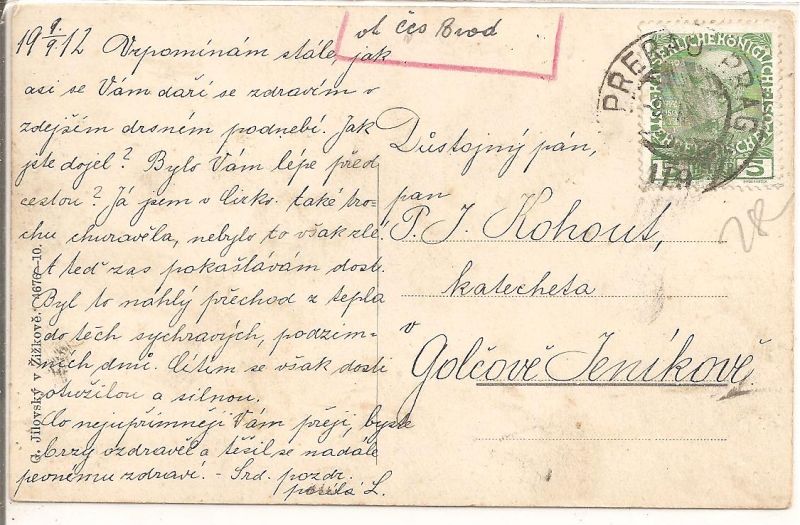 19 9/9 12 Vzpomínám stále, jak
asi se Vám daří se zdravím v
zdejším drsném podnebí. Jak
jste dojel? Bylo Vám lépe před
cestou? Já jsem v Cirkv. také tro-
chu churavěla, nebylo to však zlé.
A teď zas pokašlávám dosti.
Byl to náhlý přechod z tepla
do těch sychravých, podzim-
ních dnů. Cítím se však dosti
otužilou a silnou.
Co nejupřímněji Vám přeji, byste
brzy ozdravěl a těšil se nadále
pevnému zdraví. - Srd. pozdr.
posílá L.
ot Čes Brod
PRAG
5
Důstojný pán,
pan
P. J. Kohout,
katecheta
v
Golčově Jeníkově
28
G. Jilovský v Žižkově. 4676-10.